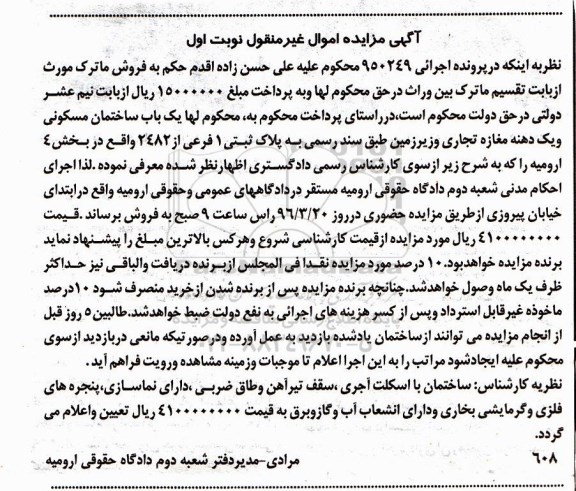 آگهی مزایده اموال غیرمنقول نوبت اول
نظربه اینکه درپرونده اجرائی ۹۵۰۲۴۹ محکوم علیه علی حسن زاده اقدم حکم به فروش ماترک مورث
ازبابت تقسیم ماترک بین وراث درحق محکوم لها وبه پرداخت مبلغ ۱۵۰۰۰۰۰۰ ریال ازبابت نیم عشر
دولتی درحق دولت محکوم است،درراستای پرداخت محکوم به، محکوم لها یک باب ساختمان مسکونی
ویک دهنه مغازه تجاری وزیرزمین طبق سند رسمی به پلاک ثبتی ۱ فرعی از ۲۴۸۲ واقع در بخش ۴
ارومیه را که به شرح زیر ازسوی کارشناس رسمی دادگستری اظهارنظر شده معرفی نموده .لذا اجرای
احکام مدنی شعبه دوم دادگاه حقوقی ارومیه مستقر دردادگاههای عمومی وحقوقی ارومیه واقع درابتدای
خیابان پیروزی ازطریق مزایده حضوری درروز ۹۶/۳/۲۰ راس ساعت ۹ صبح به فروش برساند .قیمت
۴۱۰۰۰۰۰۰۰۰ ریال مورد مزایده ازقیمت کارشناسی شروع وهرکس بالاترین مبلغ را پیشنهاد نماید
برنده مزایده خواهدبود.۱۰ درصد مورد مزایده نقدا فی المجلس ازبرنده دریافت والباقی نیز حداکثر
ظرف یک ماه وصول خواهدشد.چنانچه برنده مزایده پس از برنده شدن ازخرید منصرف شود ۱۰درصد
ماخوذه غیرقابل استرداد وپس از کسر هزینه های اجرائی به نفع دولت ضبط خواهدشد.طالبین ۵ روز قبل
از انجام مزایده می توانند ازساختمان یادشده بازدید به عمل آورده ودرصور تیکه مانعی دربازدید ازسوی
محکوم علیه ایجادشود مراتب را به این اجرا اعلام تا موجبات وزمینه مشاهده ورویت فراهم آید .
نظریه کارشناس: ساختمان با اسکلت آجری ،سقف تیرآهن وطاق ضربی ،دارای نماسازی،پنجره های
فلزی وگرمایشی بخاری ودارای انشعاب آب وگازوبرق به قیمت ۴۱۰۰۰۰۰۰۰۰ ریال تعیین واعلام می
گردد.
۶۰۸ مرادی-مدیردفتر شعبه دوم دادگاه حقوقی ارومیه